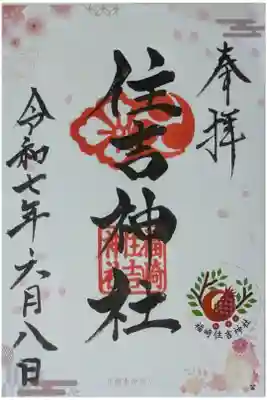 奉拝
住吉神社
福崎
住吉
神社
福崎住吉神社
令和七年六月八日